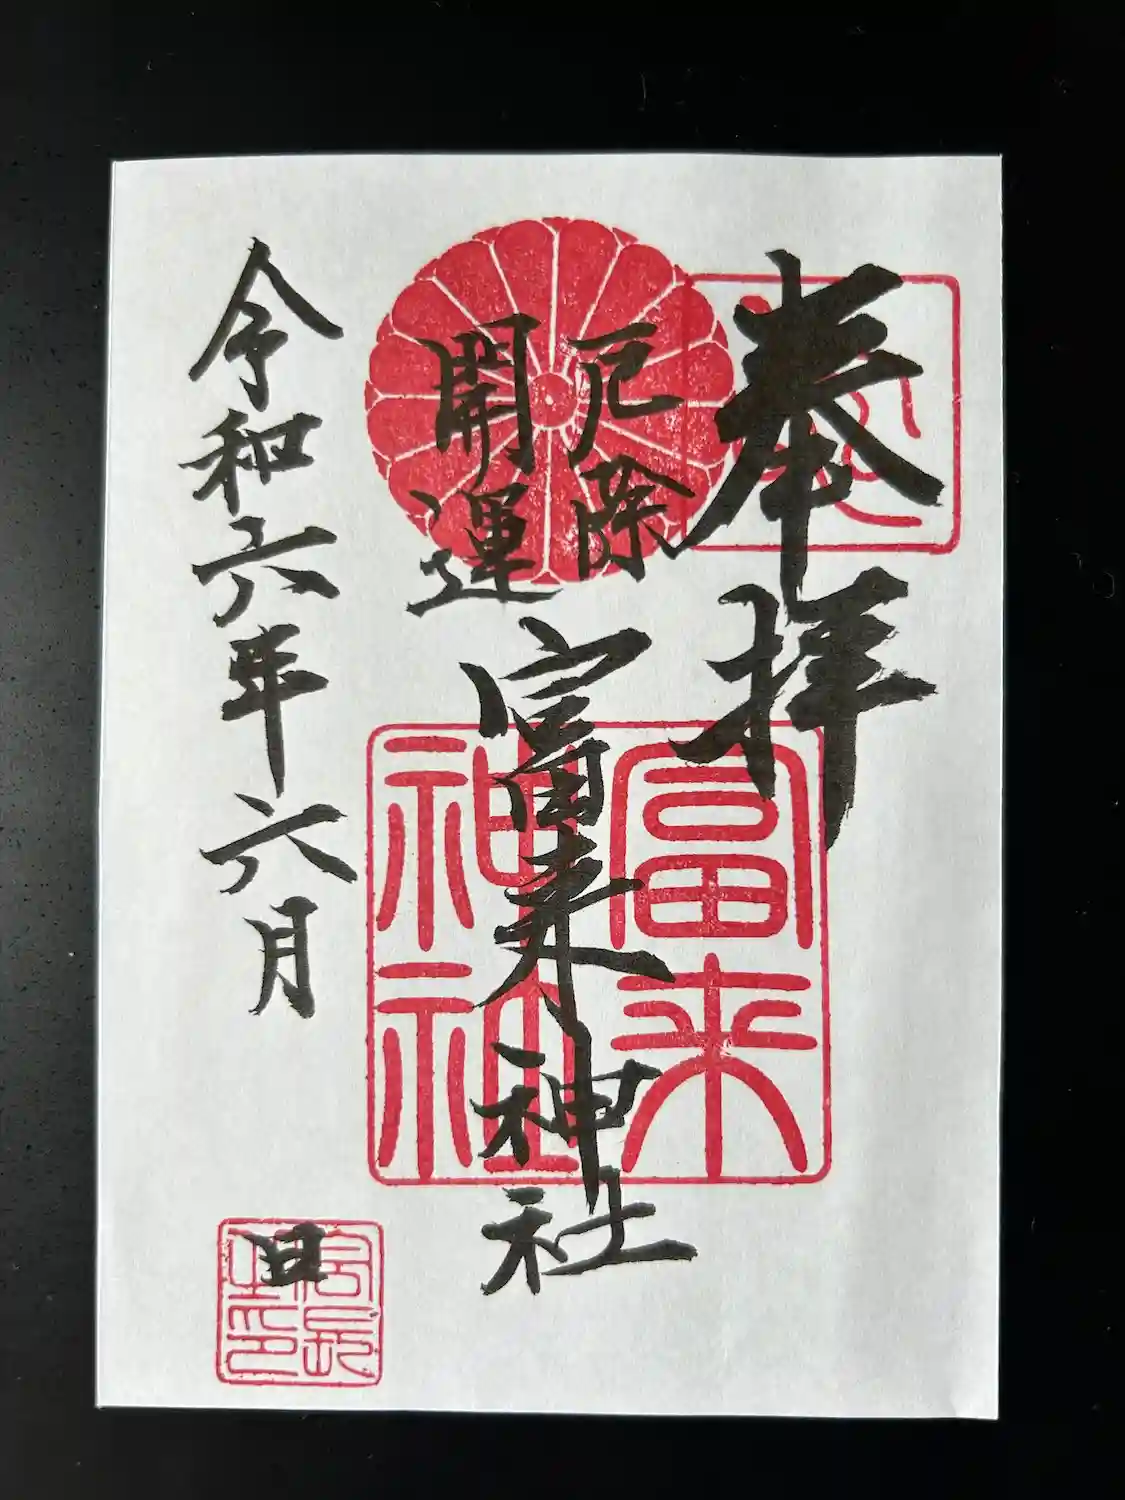 奉拝
厄除
開運
富来神社
富来
神社
令和六年六月 日
宮司
之印